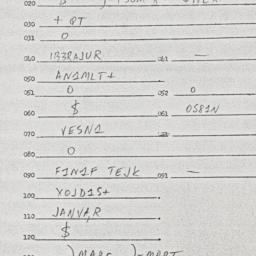 020
030 + QT
031 O
040 1332AJUR 041 —
050 AN1MLT+
051 O 052 O
060 $ 061 0581N
070 VESN1
080 O
090 F1N1F TEJK 091 —
100 XOJD15+
110 JANVA,R
120 $